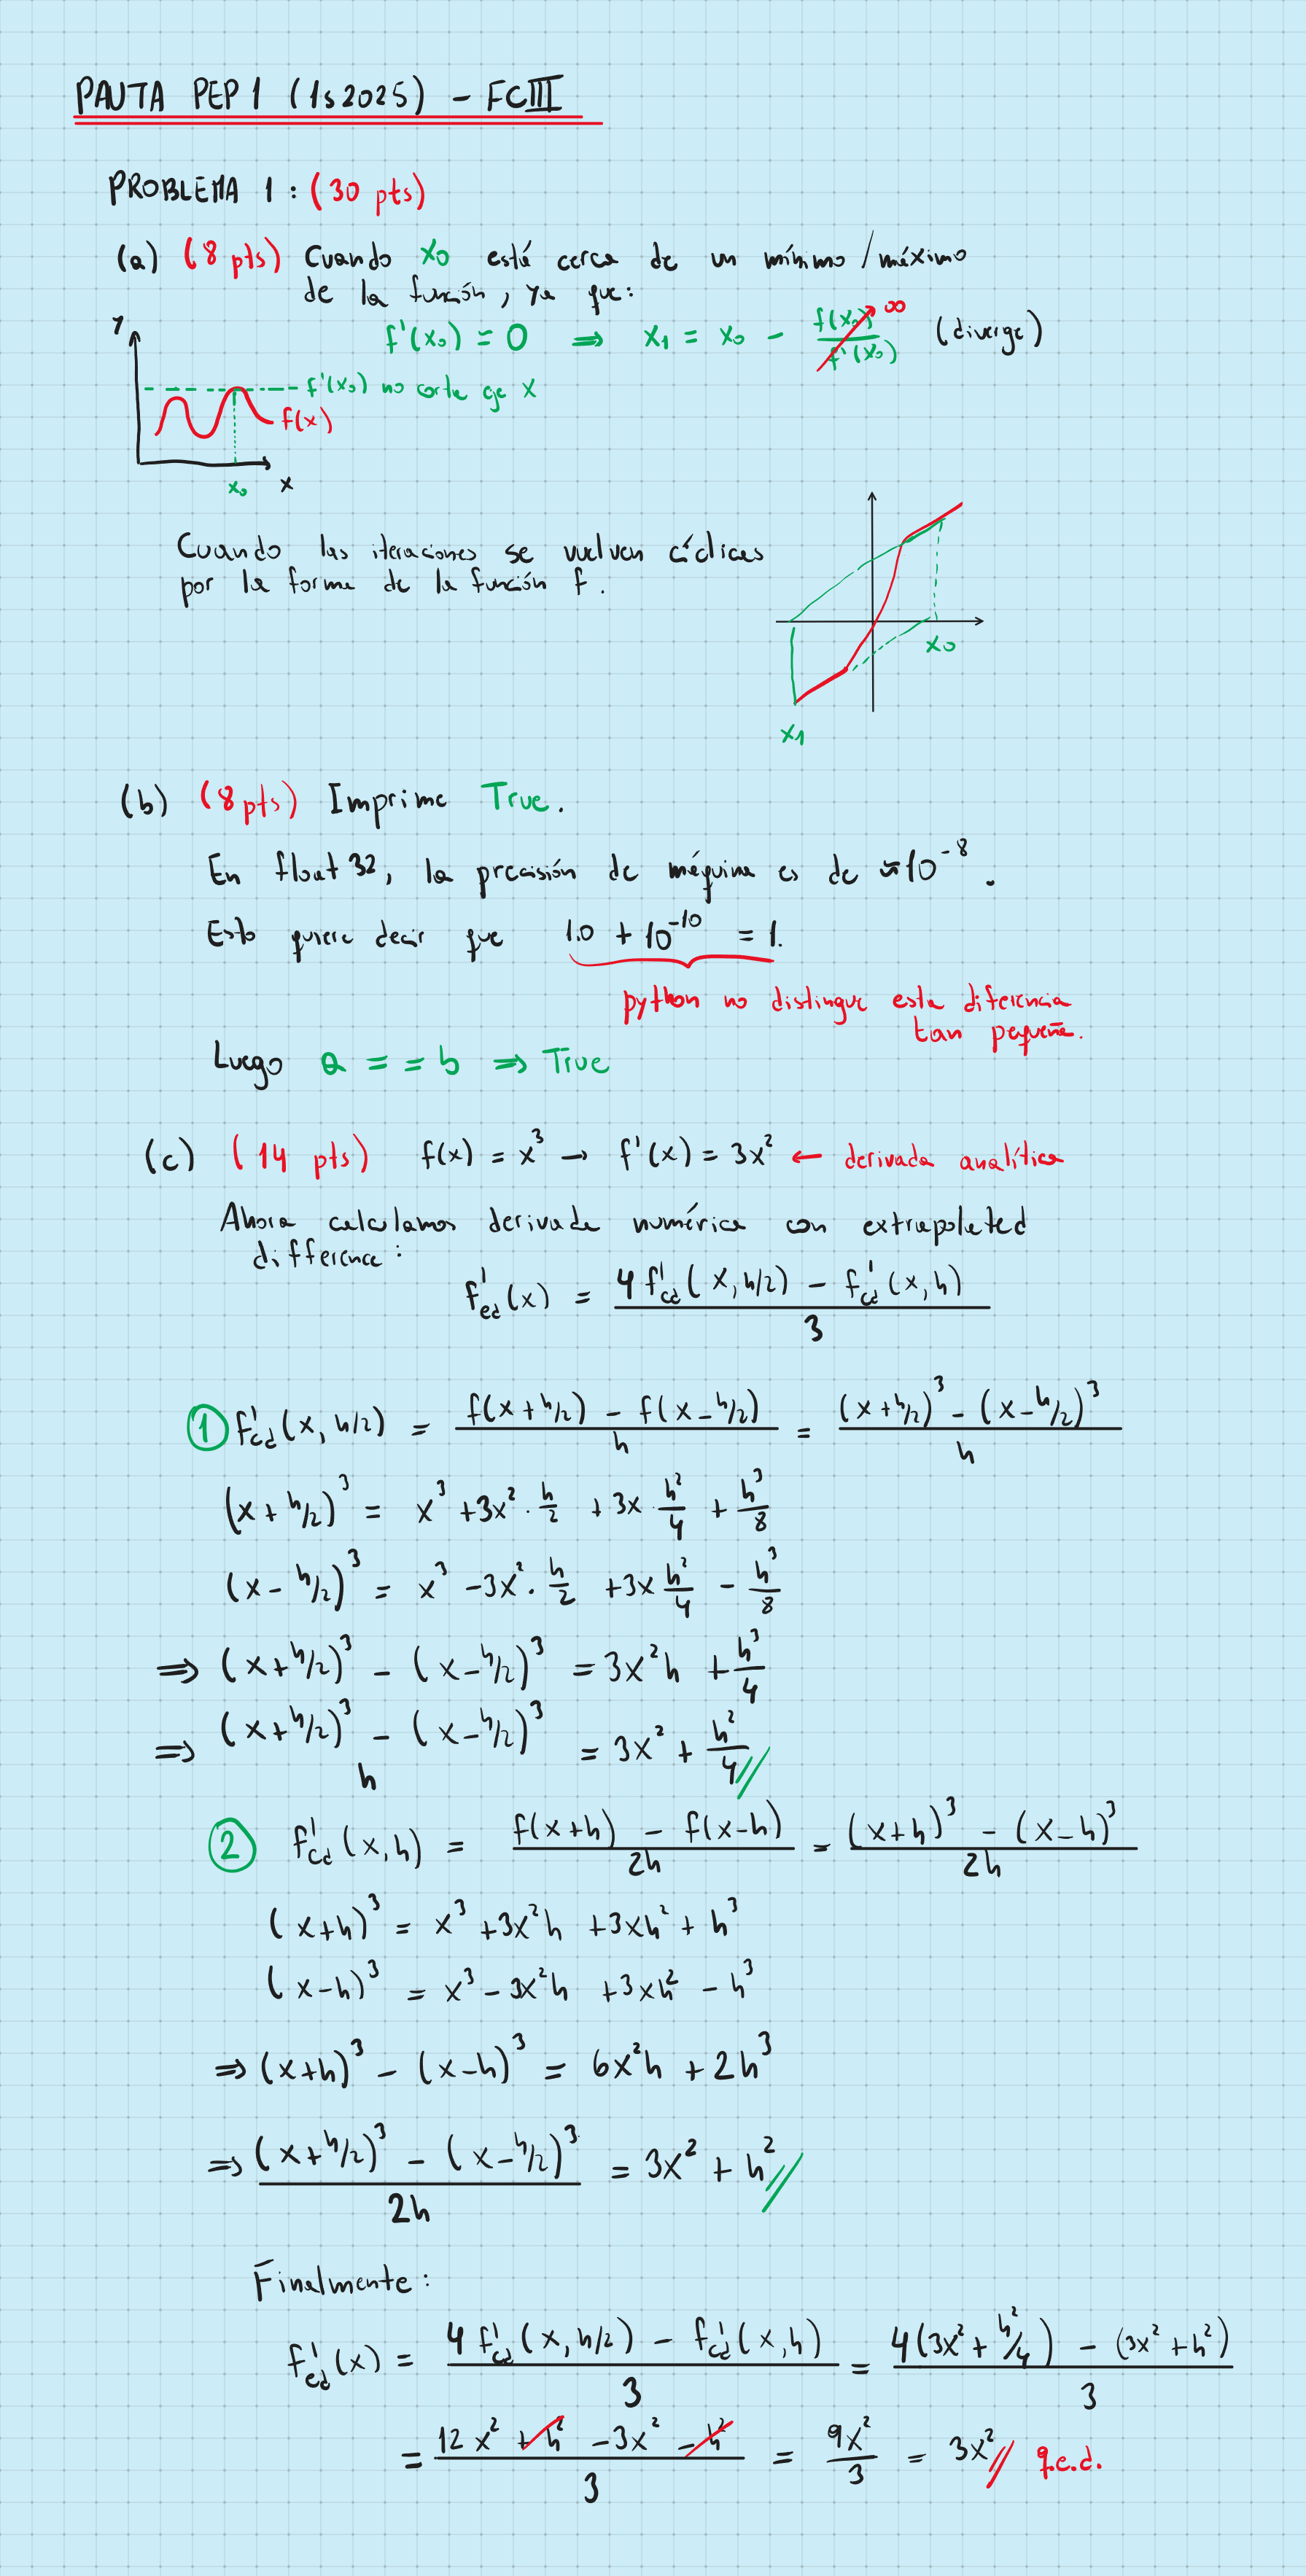 PAUTA PEP 1 (1s2025) - FCIII
PROBLEMA 1: (30 pts)
(a) (8 pts) Cuando x₀ está cerca de un mínimo/máximo
de la función, ya que:
f'(x₀) = 0 ⇒ x₁ = x₀ - f(x₀)/f'(x₀) ∞ (diverge)
Y
f'(x₀) no corta eje X
f(x)
x₀ x
Cuando las iteraciones se vuelven cíclicas
por la forma de la función f.
x₀
x₁
(b) (8 pts) Imprime True.
En float 32, la precisión de máquina es de ≈10⁻⁸.
Esto quiere decir que 1.0 + 10⁻¹⁰ = 1.
python no distingue esta diferencia
tan pequeña.
Luego a == b ⇒ True
(c) (14 pts) f(x) = x³ → f'(x) = 3x² ← derivada analítica
Ahora calculamos derivada numérica con extrapolated
difference:
f'ed(x) = (4 f'cd(x, h/2) - f'cd(x, h))/3
① f'cd(x, h/2) = (f(x+h/2) - f(x-h/2))/h = ((x+h/2)³ - (x-h/2)³)/h
(x + h/2)³ = x³ + 3x² · h/2 + 3x · h²/4 + h³/8
(x - h/2)³ = x³ - 3x² · h/2 + 3x h²/4 - h³/8
⇒ (x+h/2)³ - (x-h/2)³ = 3x²h + h³/4
⇒ (x+h/2)³ - (x-h/2)³ / h = 3x² + h²/4 //
② f'cd(x, h) = (f(x+h) - f(x-h))/2h = ((x+h)³ - (x-h)³)/2h
(x+h)³ = x³ + 3x²h + 3xh² + h³
(x-h)³ = x³ - 3x²h + 3xh² - h³
⇒ (x+h)³ - (x-h)³ = 6x²h + 2h³
⇒ ((x+h/2)³ - (x-h/2)³)/2h = 3x² + h² //
Finalmente:
f'ed(x) = (4 f'cd(x, h/2) - f'cd(x, h))/3 = (4(3x² + h²/4) - (3x² + h²))/3
= (12x² + h² - 3x² - h²)/3 = 9x²/3 = 3x² // q.e.d.